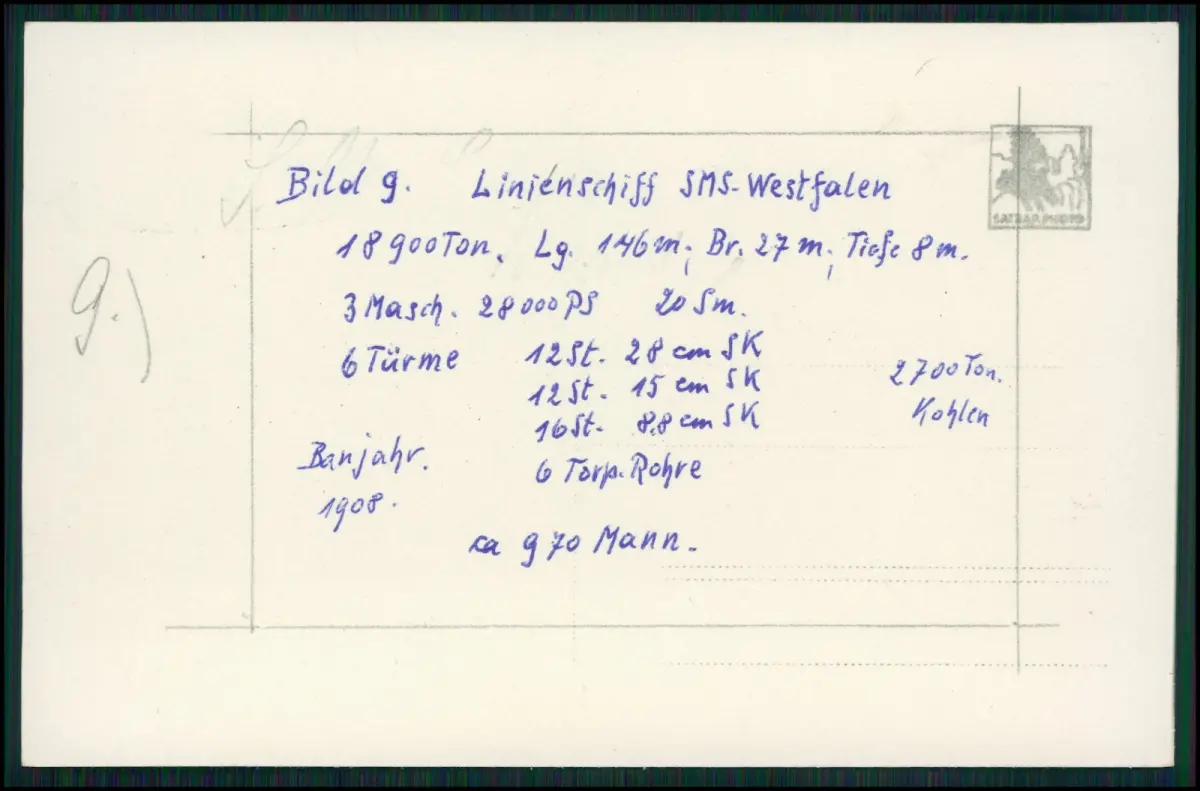 Bild 9. Linienschiff SMS-Westfalen
18900 Ton. Lg. 146 m; Br. 27 m; Tiefe 8 m.
3 Masch. 28000 PS 20 Sm.
9.)
6 Türme 12 St. 28 cm SK
12 St. 15 cm SK
16 St. 8,8 cm SK
2700 Ton.
Kohlen
6 Torp. Rohre
Baujahr.
1908.
ca 970 Mann.